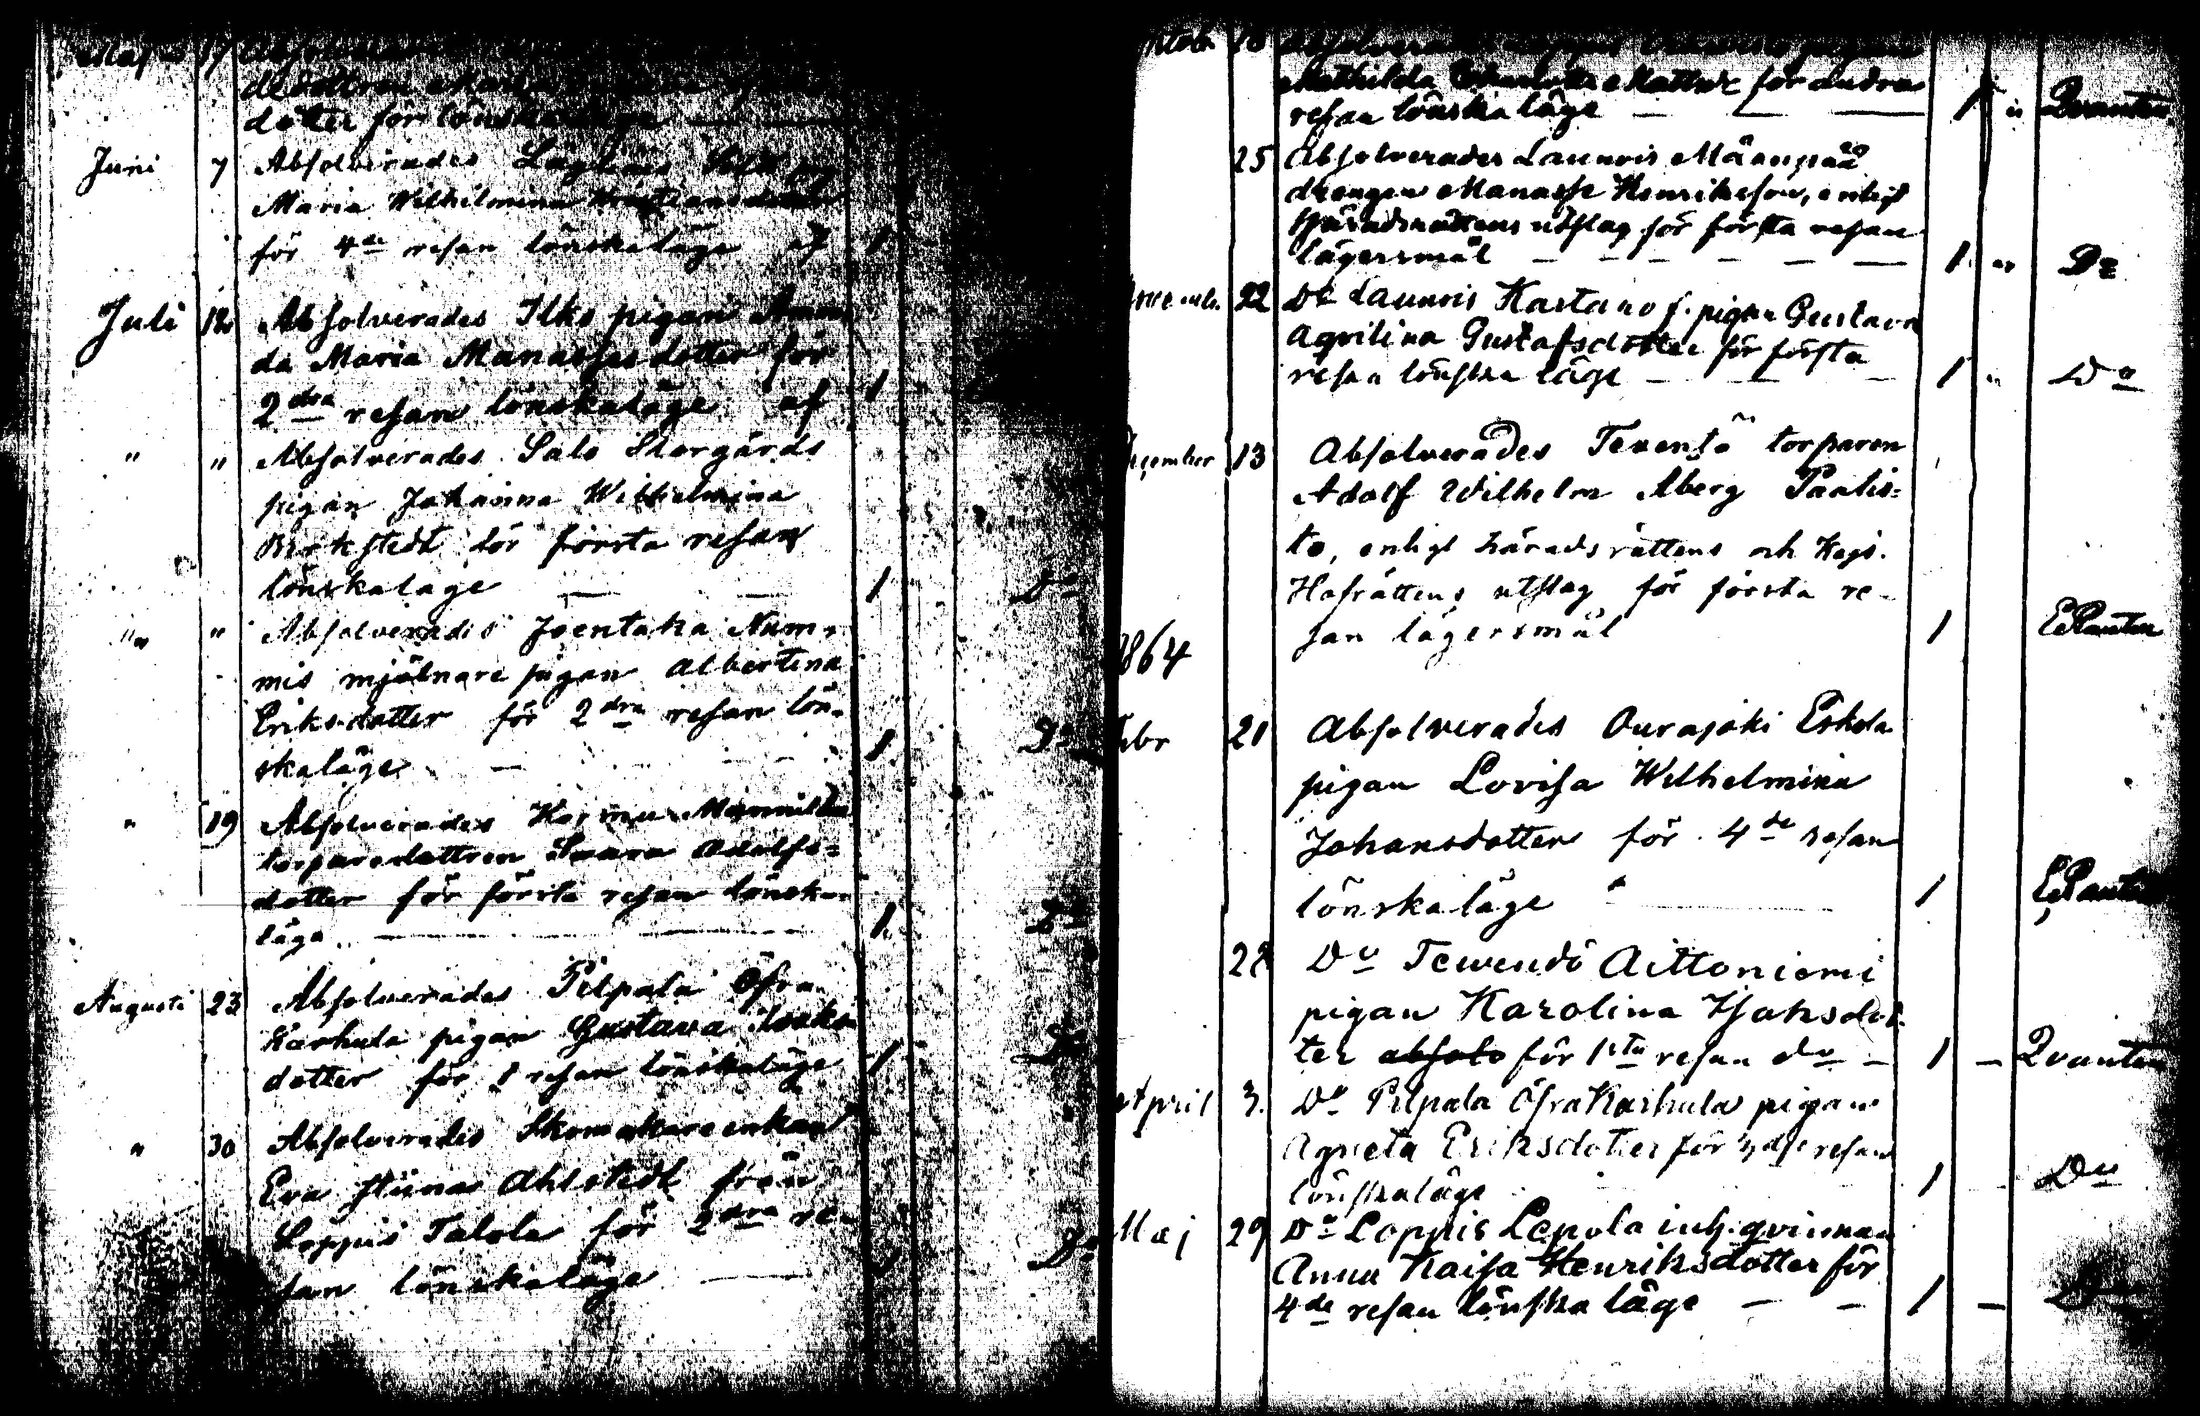 dotter för lönskaläge
Juni 7 Absolverades
Maria Wilhelmina
för 4de resan lönskaläge af 1
Juli 12 Absolverades Ilko pigan Aman
da Maria Manassesdotter för
2dra resan lönskaläge af 1
" " Absolverades Salo Storgårds
pigan Johanna Wilhelmina
Berkstedt för första resan
lönskaläge — — 1 Do
" " Absolverades Joentaka Num-
mis mjölnare pigan Albertina
Eriksdotter för 2dra resan lön-
skaläge — — 1 Do
" 19 Absolverades
torparedottren Adolfs=
dotter för första resan lönska-
läge — — 1 Do
Augusti 23 Absolverades Pilpala Öfra
Karhula pigan Gustava
dotter för 1 resan lönskaläge 1 Do
" 30 Absolverades Skomakareenkan
Eva Stina Ahlstedt från
Loppis Talola för 2dra re-
san lönskaläge — 1 Do
18
Mathilda för andra
resan lönska läge — — — 1 " Qvanten
25 Absolverades Launois Määnpää
drengen Manasse Henriksson, enligt
Häradsrättens utslag för första resan
lägersmål — — — — 1 " Do
22 Do Launois Kartano f. pigan Gustava
Agvilina Gustafsdotter för första
resan lönska läge — — — 1 " Do
December 13 Absolverades Teventö torparen
Adolf Wilhelm Åberg Paalis=
to, enligt häradsrättens och Kejs.
Hofrättens utslag för första re-
san lägersmål 1
1864
Febr 21 Absolverades Ourajoki Erkola
pigan Lovisa Wilhelmina
Johansdotter för 4de resan
lönskaläge 1
28 Do Tewendö Aittoniemi
pigan Karolina Isaksdot-
ter absolv för 1sta resan do — 1 — Qvanten
April 3. Do Pilpala Öfra Karhula pigan
Agneta Eriksdotter för resan
lönskaläge 1 Do
Maj 29 Do Loppis Lepola inh. qvinnan
Anna Kaisa Henriksdotter för
4de resan lönska läge — — 1 — Do